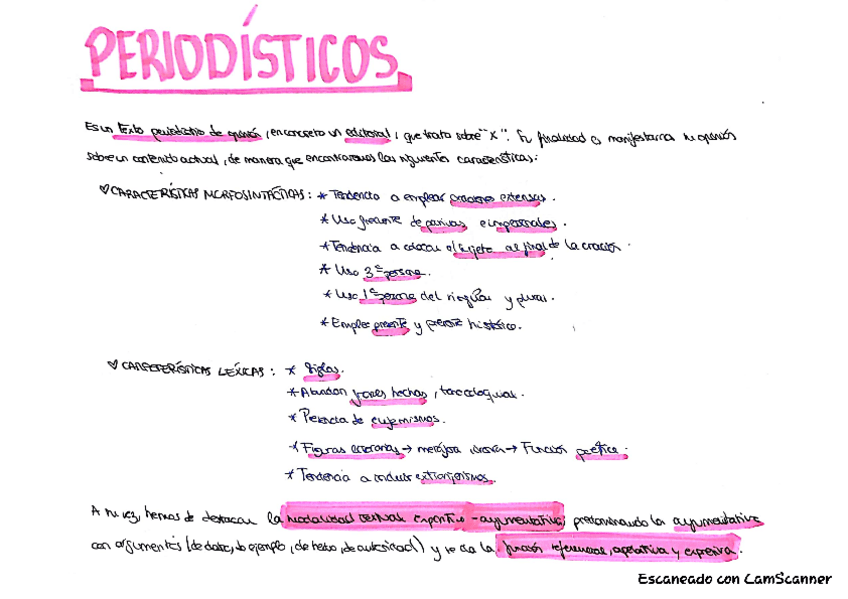 PERIODÍSTICOS
Es un texto periodístico de opinión, en concreto un editorial, que trata sobre "x". Su finalidad es manifestarnos su opinión
sobre un contenido actual, de manera que encontraremos las siguientes características:
♡ CARACTERÍSTICAS MORFOSINTÁCTICAS: * Tendencia a emplear oraciones extensas.
* Uso frecuente de pasivas e impersonales.
* Tendencia a colocar el sujeto al final de la oración.
* Uso 3ª persona.
* Uso 1ª persona del singular y plural.
* Emplea presente y presente histórico.
♡ CARACTERÍSTICAS LÉXICAS: * Siglas.
* Abundan frases hechas, tono coloquial.
* Presencia de eufemismos.
* Figuras literarias → metáfora, ironía → Función poética.
* Tendencia a extranjerismos.
A su vez, hemos de destacar la modalidad textual expositivo-argumentativa, predominando la argumentativa
con argumentos (de datos, de ejemplo, de hecho, de autoridad) y se da la función referencial, apelativa y expresiva.
Escaneado con CamScanner